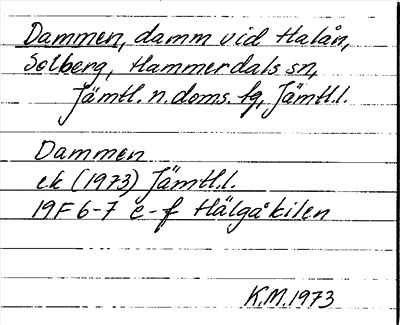 Dammen, damm vid Halån,
Solberg, Hammerdals sn,
Jämtl. n. doms. fg, Jämtl.l.
Dammen
ek (1973) Jämtl.l.
19F 6-7 e-f Hälgåkilen
K.M. 1973